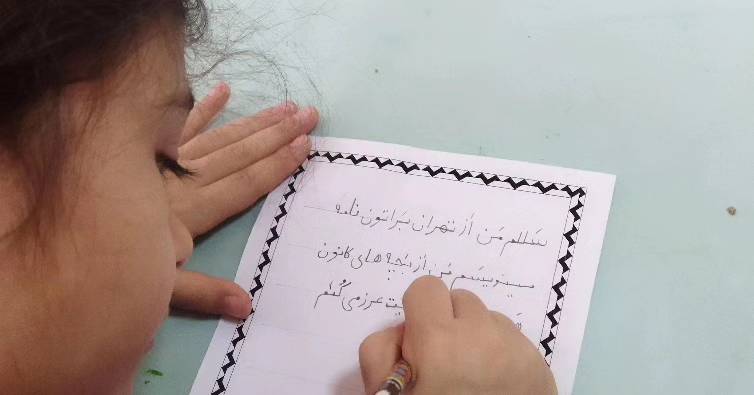 سَلام مَن اَز تهران بَراتون نامه
مینویسَم مَن اَز بَچه های کانون
عرز می کُنَم